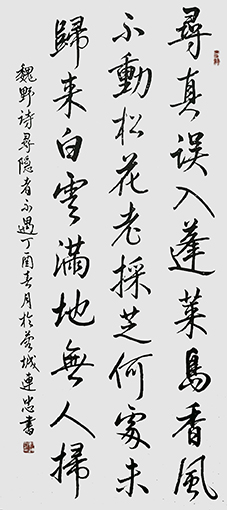 尋真误入蓬莱島香風
不動松花老採芝何處未
歸来白雲满地無人掃
魏野诗尋隐者不遇丁酉春月於蓉城連忠書